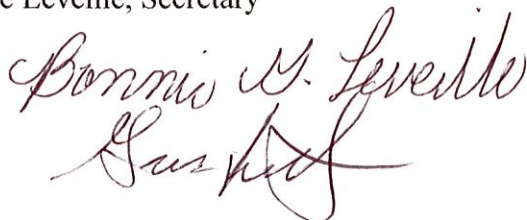 e Leveille, Secretary
Bonnie G. Leveille